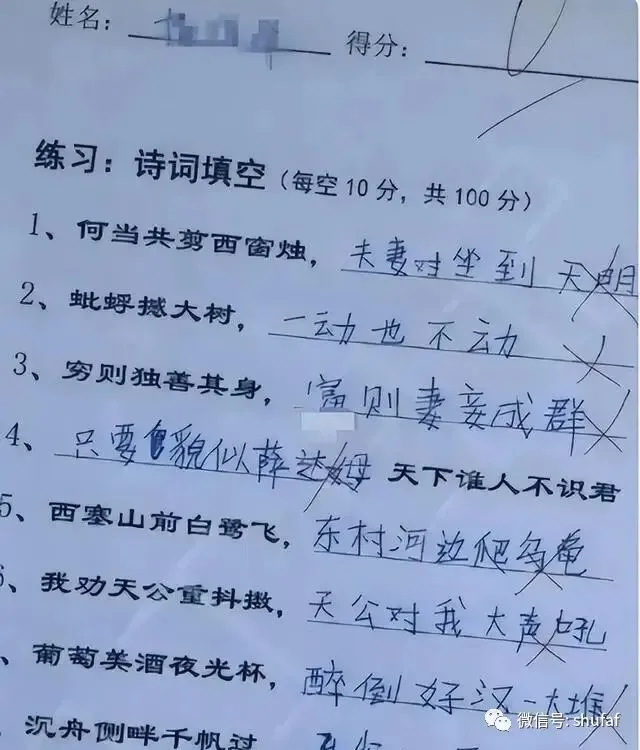 姓名： 得分：
练习：诗词填空（每空10分，共100分）
1、何当共剪西窗烛，夫妻对坐到天明
2、蚍蜉撼大树，一动也不动
3、穷则独善其身，富则妻妾成群
4、只要貌似薛达姆 天下谁人不识君
5、西塞山前白鹭飞，东村河边爬乌龟
6、我劝天公重抖擞，天公对我大声吼
、葡萄美酒夜光杯，醉倒好汉一大堆
沉舟侧畔千帆过
微信号: shufaf